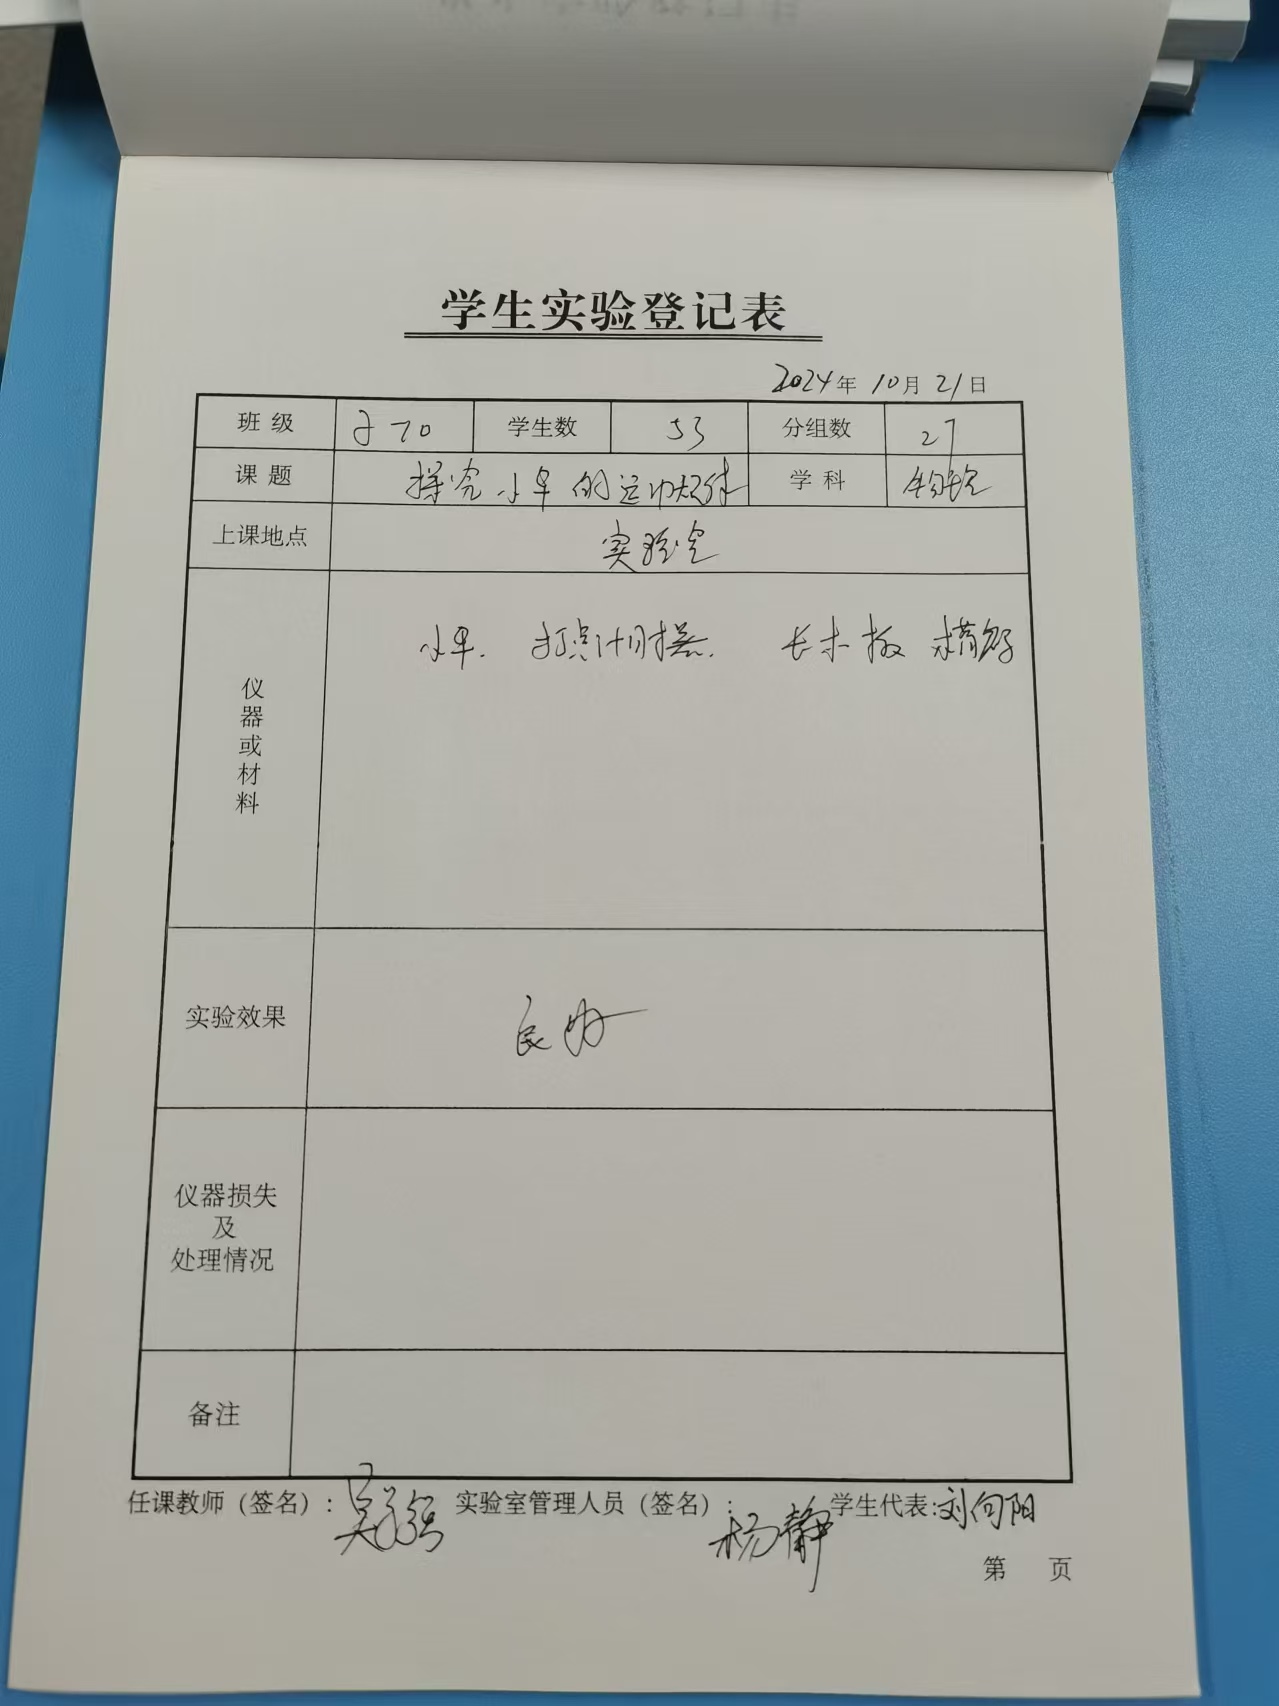 学生实验登记表
2024年10月21日
班级 270 学生数 53 分组数 27
课题 探究小车的运动规律 学科 物理
上课地点 实验室
仪器或材料 小车. 打点计时器. 长木板
实验效果 良好
仪器损失
及
处理情况
备注
任课教师（签名）: 实验室管理人员（签名）: 杨静 学生代表:刘向阳
第 页